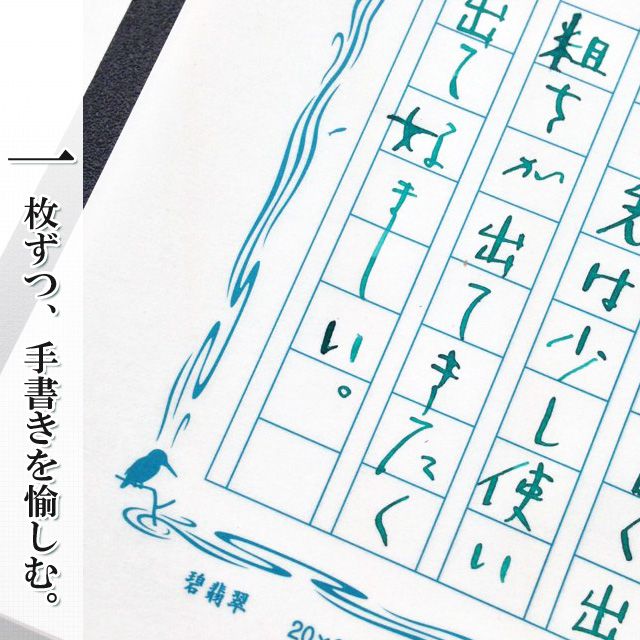 一枚ずつ、手書きを愉しむ。
く出
表は少し使い
粗ちが出てきたく
出て好ましい。
碧翡翠
20×